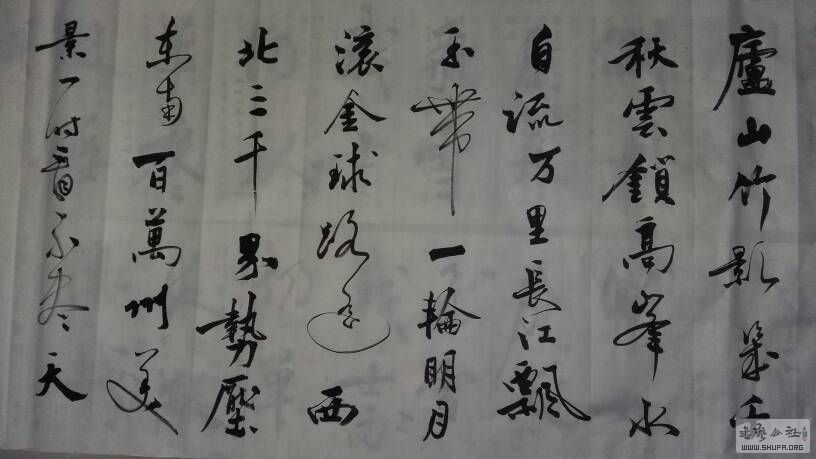 廬山竹影幾千
秋雲鎖高峯水
自流万里長江飄
玉帶一輪明月
滾金球路遙西
北三千界勢壓
东南百萬州美
景一时看不尽天
WWW.SHUFA.ORG